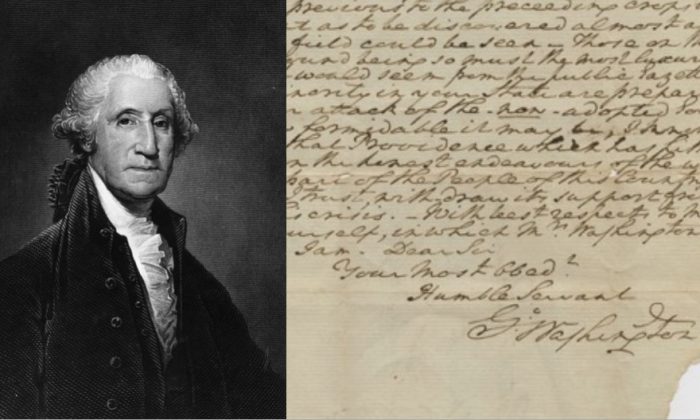 previous to the preceeding crops
t as to be discovered almost
field could be seen – Those on
ound being so must the most luxur
would seem from the public Gazet
nority in your State are prepar
attack of the now – adopted
formidable it may be, I
that Providence which has
n the honest endeavours of the
part of the People of this Count
trust, withdraw its support fro
crisis. – With best respects to
urself, in which Mrs Washington
I am – Dear Sir
Your Most Obedt
Humble Servant
Go Washington